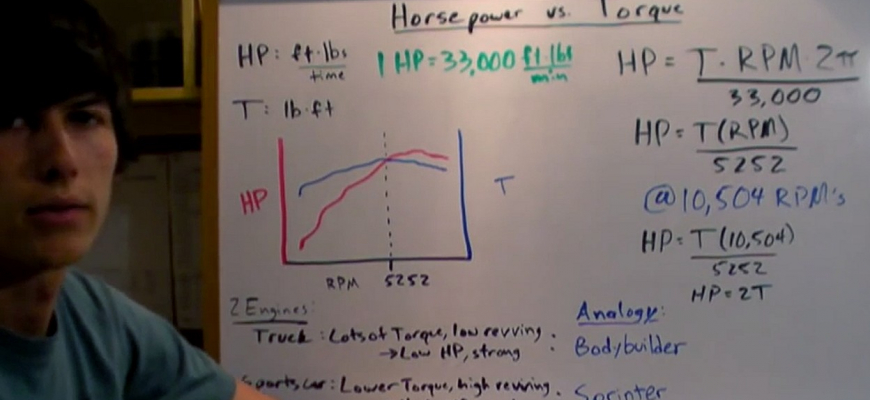 Horsepower vs. Torque
HP: ft·lbs
time
1 HP = 33,000 ft·lbs
min
T: lb·ft
HP
T
RPM
5252
HP = T · RPM · 2π
33,000
HP = T(RPM)
5252
@10,504 RPM's
HP = T(10,504)
5252
HP = 2T
2 Engines:
Truck: Lots of Torque, low revving.
→Low HP, strong
Sportscar: Lower Torque, high revving.
Analogy:
: Bodybuilder
. Sprinter